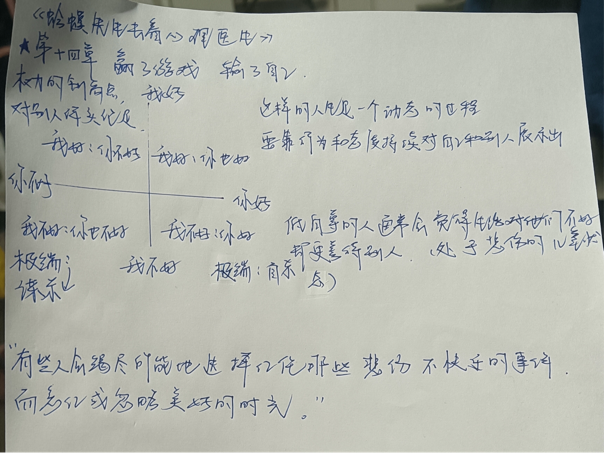 《蛤蟆先生去看心理医生》
★第十四章 赢了游戏 输了自己
权力的制高点，
对别人保头优足
我好
这样的人生是一个动态的过程
要靠行为和态度持续对自己和别人展示出
我好：你不好
我好：你也好
你不好
你好
我不好：你也不好
我不好：你好
低自尊的人通常会觉得生活对他们不好
却更善待别人．（处于悲伤的儿童状
态）
极端：
谋杀
我不好
极端：自杀
“有些人会竭尽所能地选择记住那些悲伤 不快乐的事件．
而忘记或忽略美好的时光。”